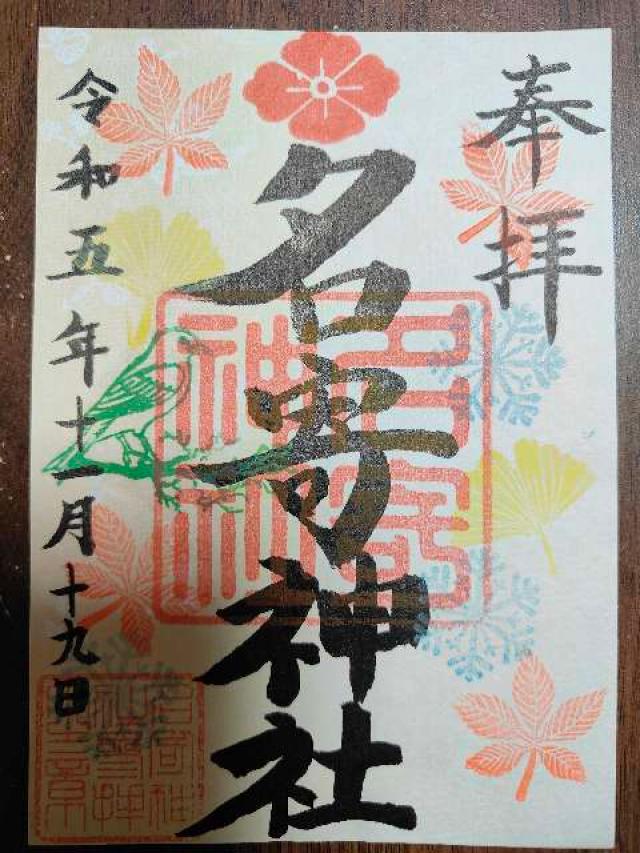 奉拝
名寄神社
令和五年十一月十九日
名寄神社